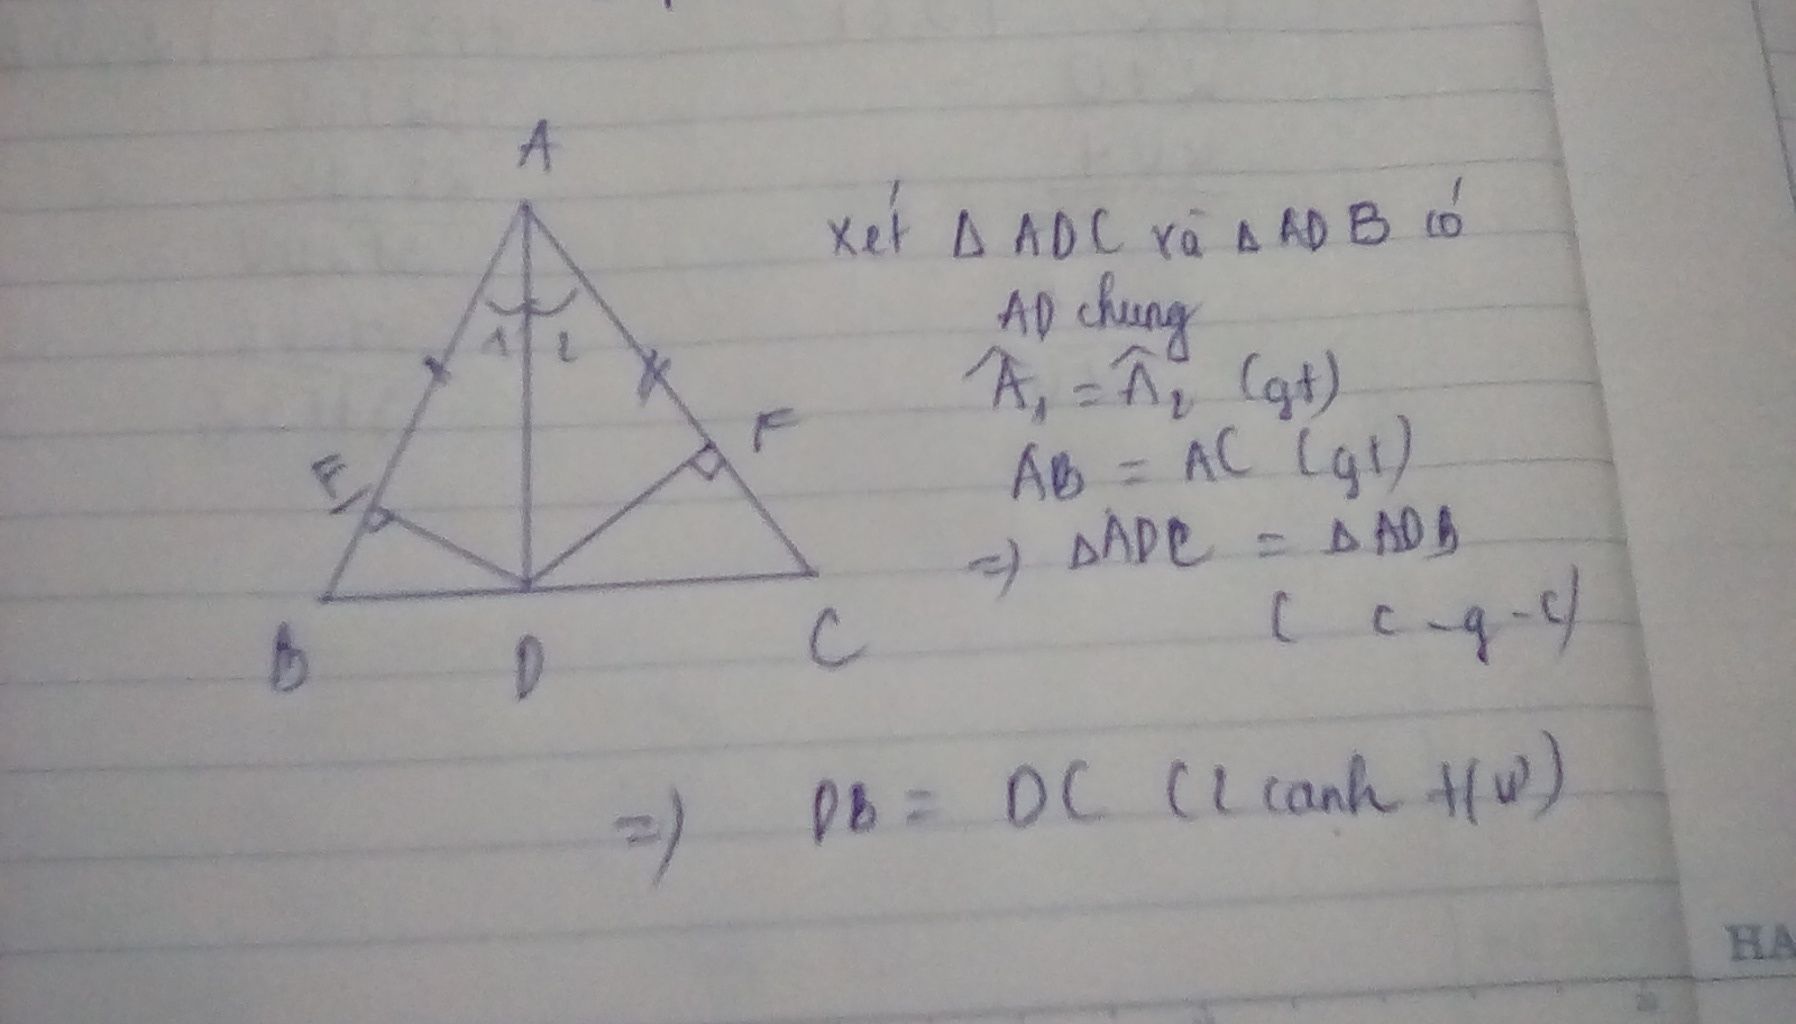 A
1 2
E
F
B
D
C
xét Δ ADC và Δ ADB có
AD chung
Â₁ = Â₂ (gt)
AB = AC (gt)
=) ΔADC = ΔADB
( c - g - c)
=) DB = DC (2 cạnh
HA